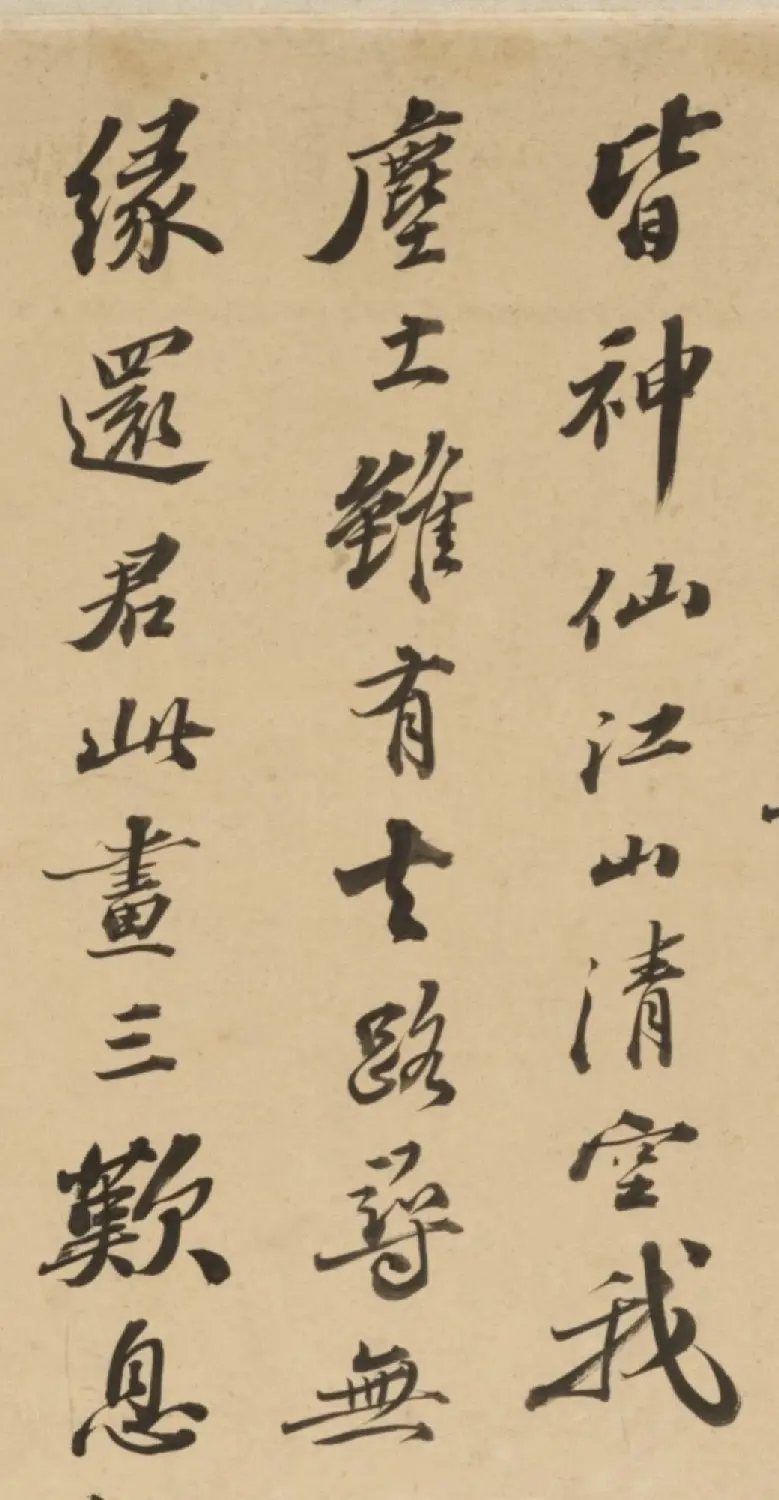 皆神仙江山清空我
塵土雖有去路尋無
緣還君此畫三歎息